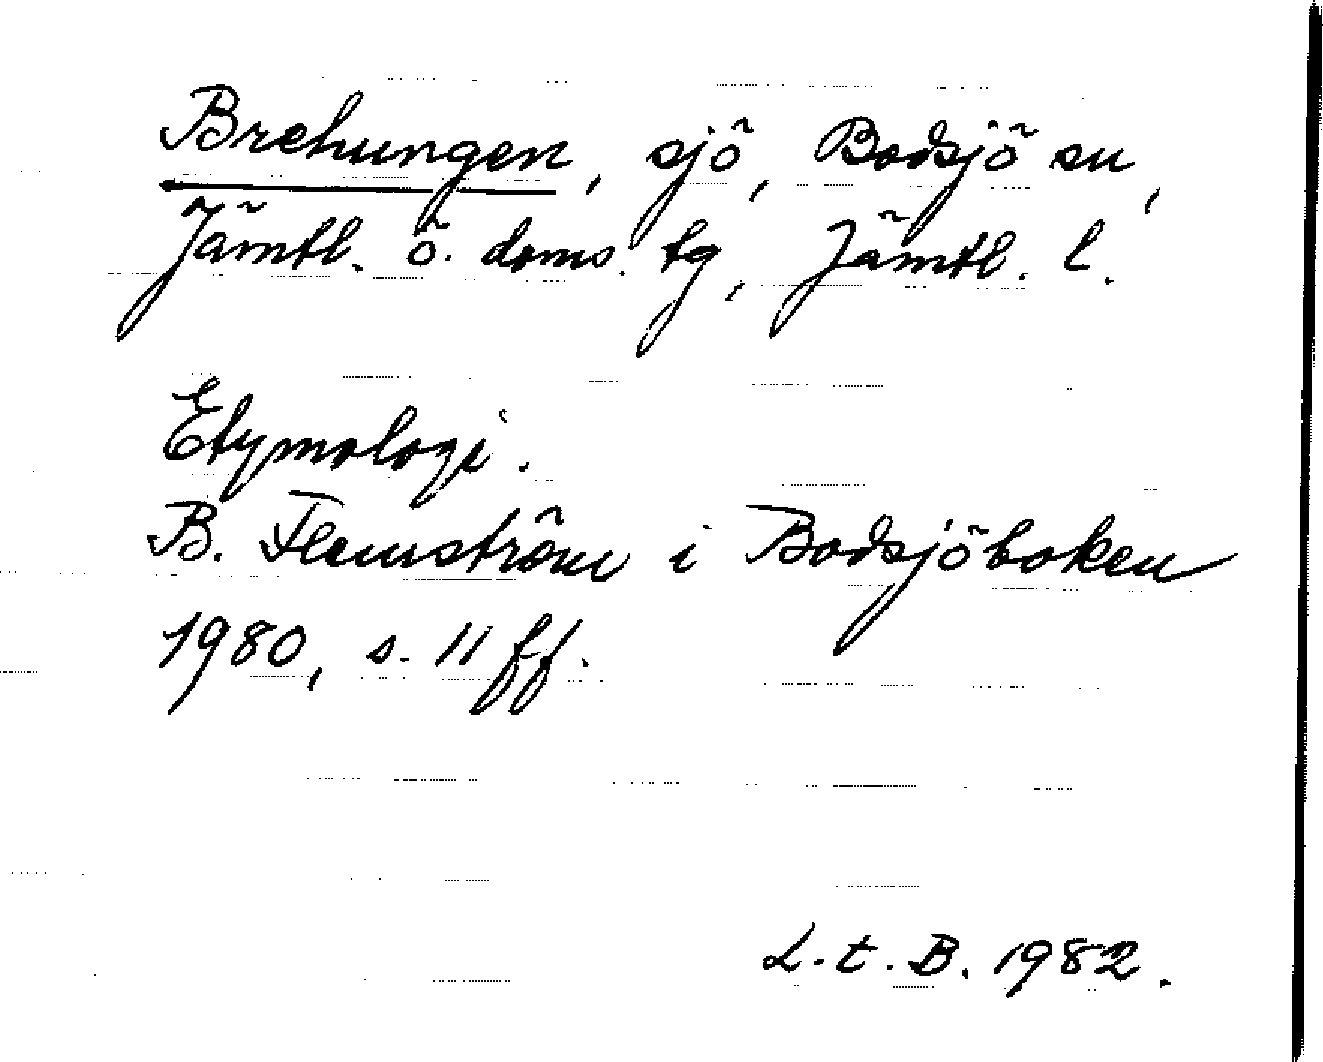 Brehungen, sjö, Bodsjö sn,
Jämtl. ö. doms. tg, Jämtl. l.
Etymologi.
B. Flemström i Bodsjöboken
1980, s. 11 ff.
L.t.B. 1982.